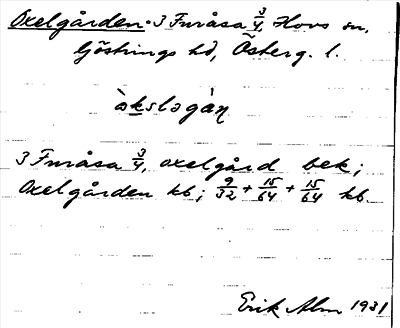 Oxelgården. 3 Furåsa 3/4, Hovs sn,
Göstrings hd, Österg. l.
àkslagàṇ
3 Furåsa 3/4, oxelgård bek;
Oxelgården kb; 9/32 + 15/64 + 15/64 kb.
Erik Alm 1931